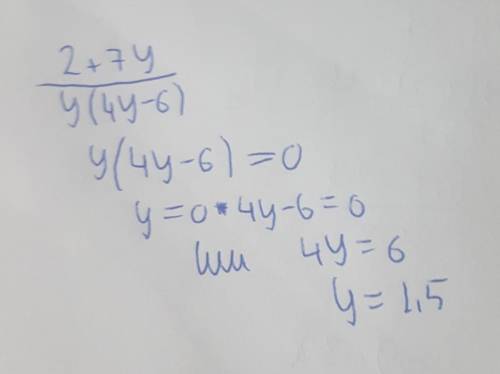 2+7y
y(4y-6)
y(4y-6)=0
y=0 * 4y-6=0
или 4y=6
y=1,5